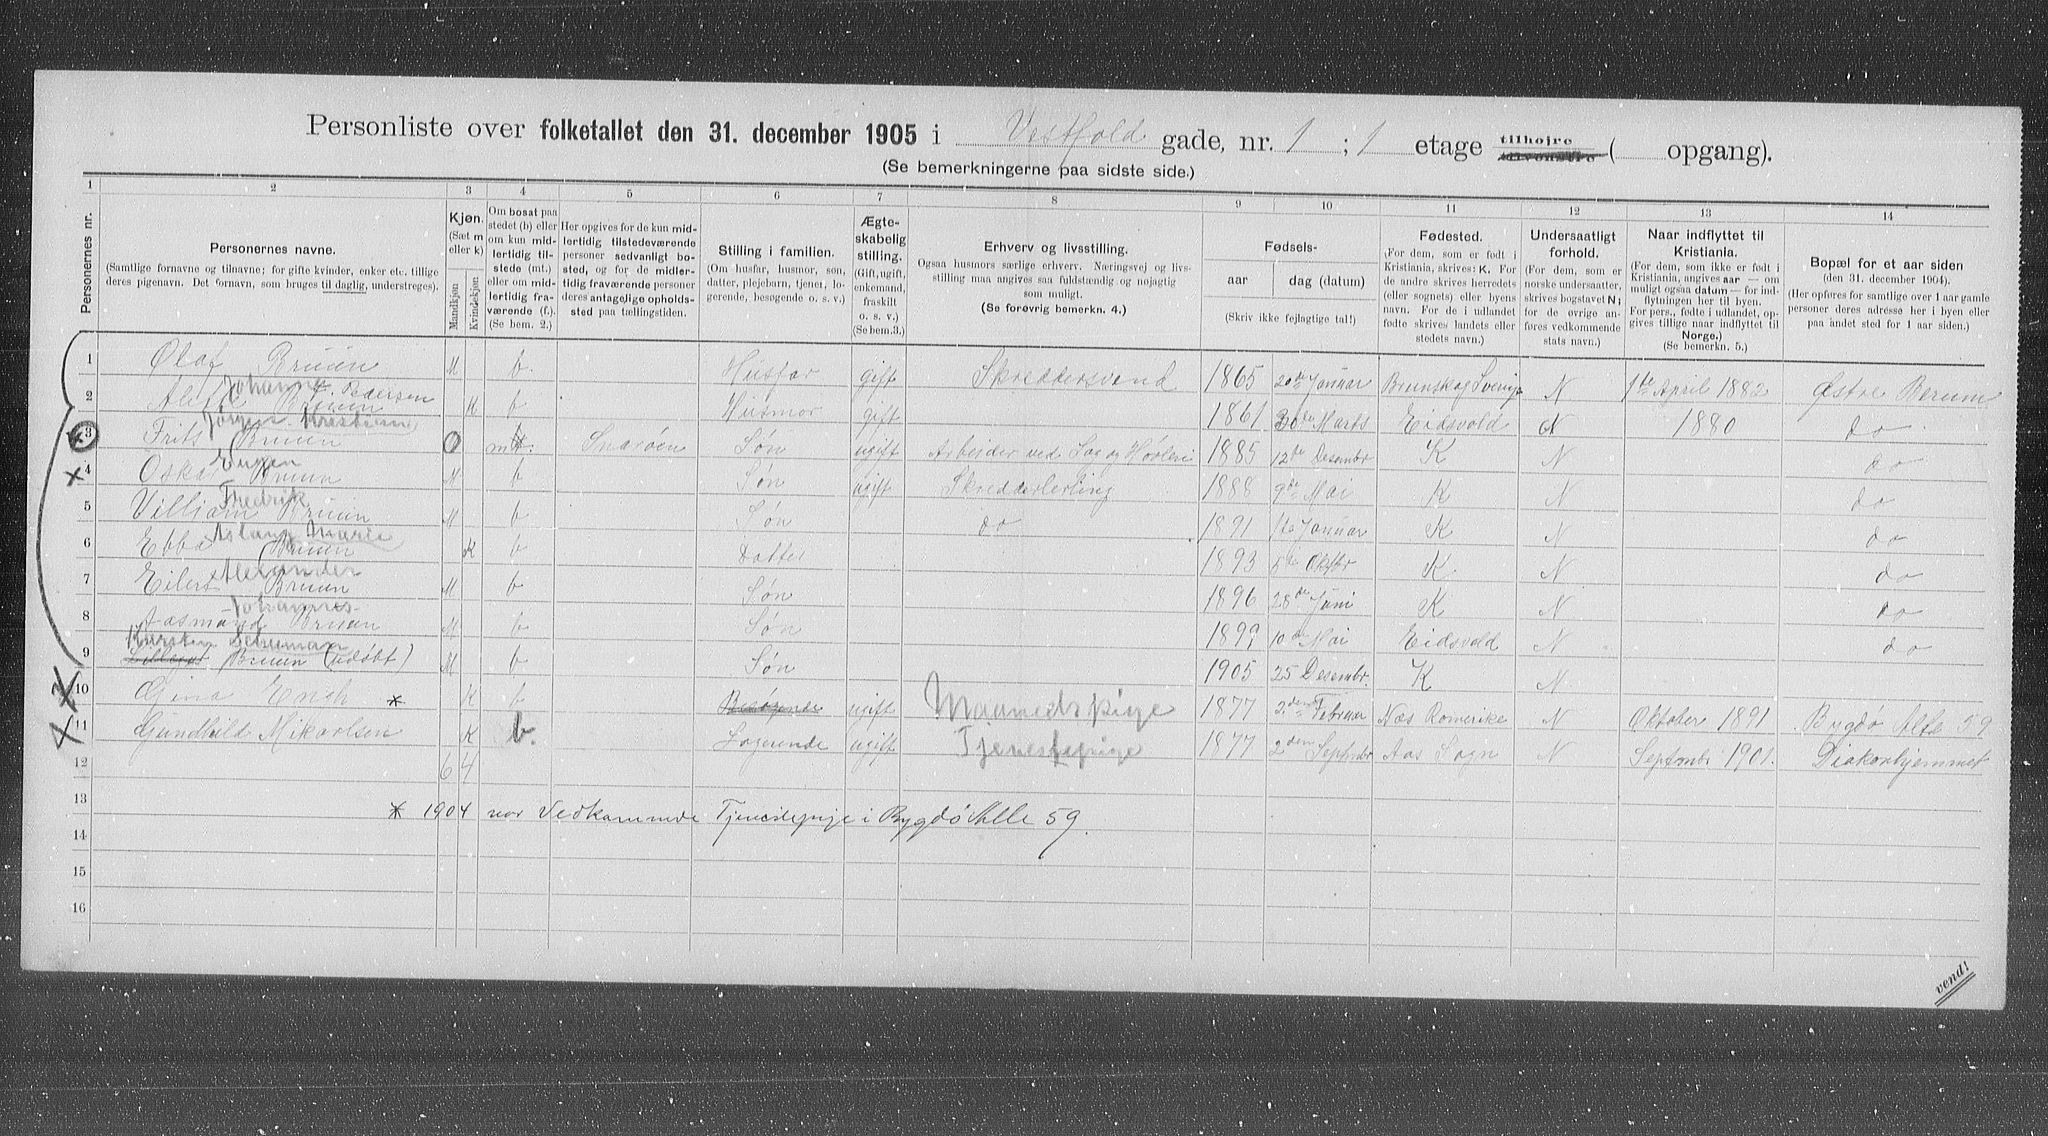 Personliste over folketallet den 31. december 1905 i Vestfold gade, nr. 1 ; 1 etage tilhøjre ( opgang).
(Se bemerkningerne paa sidste side.)
1 2 3 4 5 6 7 8 9 10 11 12 13 14
Personernes nr.
Personernes navne.
(Samtlige fornavne og tilnavne; for gifte kvinder, enker etc. tillige
deres pigenavn. Det fornavn, som bruges til daglig, understreges).
Kjøn.
(Sæt m
eller k)
Mandkjøn
Kvindekjøn.
Om bosat paa
stedet (b) eller
om kun midlertidig tilstede (mt.)
eller om midlertidig fraværende (f.).
(Se bem. 2.)
Her opgives for de kun midlertidig tilstedeværende
personer sedvanlig bosted, og for de midlertidig fraværende personer
deres antagelige opholdssted paa tællingstiden.
Stilling i familien.
(Om husfar, husmor, søn,
datter, plejebarn, tjener, logerende, besøgende o. s. v.)
Ægteskabelig
stilling.
(Gift, ugift,
enkemand,
fraskilt
o. s. v.)
(Se bem.3.)
Erhverv og livsstilling.
Ogsaa husmors særlige erhverv. Næringsvej og livsstilling maa angives saa fuldstændig og nøjagtig
som muligt.
(Se forøvrig bemerkn. 4.)
Fødsels-
aar dag (datum)
(Skriv ikke fejlagtige tal!)
Fødested.
(For dem, som er født i
Kristiania, skrives: K. For
de andre skrives herredets
(eller sognets) eller byens
navn. For de i udlandet
fødte skrives landets eller
stedets navn.)
Undersaatligt
forhold.
(For dem, som er
norske undersaatter,
skrives bogstavet N;
for de øvrige anføres vedkommende
stats navn.)
Naar indflyttet til
Kristiania.
(For dem, som ikke er født i
Kristiania, angives aar — om
muligt ogsaa datum — for indflytningen her til byen.
For pers., fødte i udlandet, opgives tillige naar indflyttet til
Norge.)
(Se bemerkn. 5.)
Bopæl for et aar siden
(den 31. december 1904).
(Her opføres for samtlige over 1 aar gamle
personer deres adresse her i byen eller
paa andet sted for 1 aar siden.)
1 Olaf Bruun M b. Husfar gift Skreddersvend 1865 20de Januar Brunskog Sverige N 1ste April 1882 Østre Berum
Johanne f. Pedersen
2 Bruun K b Husmor gift 1861 30de Marts Eidsvold N 1880 do
Jørgen Kristian
3 Frits Bruun mt. Snarøen Søn ugift Arbeider ved Sag og Høvleri 1885 12de Desembr K N do
Eugen
4 Oskar Bruun M b Søn ugift Skredderlerling 1888 9de Mai K N do
Fredrik
5 Villiam Bruun M b Søn do 1891 Januar K N do
Aslaug Marie
6 Ebba Bruun K b Datter 1893 5te Oktbr K N do
Alexander
7 Eilert Bruun M b Søn 1896 28de Juni K N do
Johannes
8 Aasmund Bruun M b Søn 1899 10de Mai Eidsvold N do
Karsten Scheuman
9 Bruun (udøbt) M b Søn 1905 25 Desembr. K N
10 Gina Engh * K b Besøgende ugift Maanedspige 1877 2den Februar Næs Romerike N Oktober 1891 Bygdø Alle 59
11 Gundhild Mikarlsen K b. Logerende ugift Tjenestepige 1877 2den Septembr Aas Sogn N Septmbr 1901. Diakonhjemmet
12 6 4
13 * 1904 var Vedkommende Tjenestepige i Bygdø Alle 59.
14
15
16
vend!